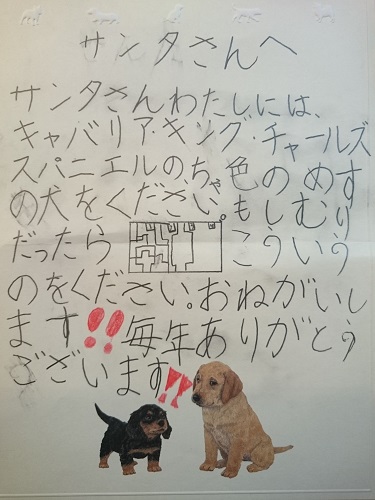 サンタさんへ
サンタさんわたしには、
キャバリア・キング・チャールズ
スパニエルのちゃ色のめす
の犬をください。もしむり
だったら こういう
のをください。おねがいし
ます!!毎年ありがとう
ございます!!